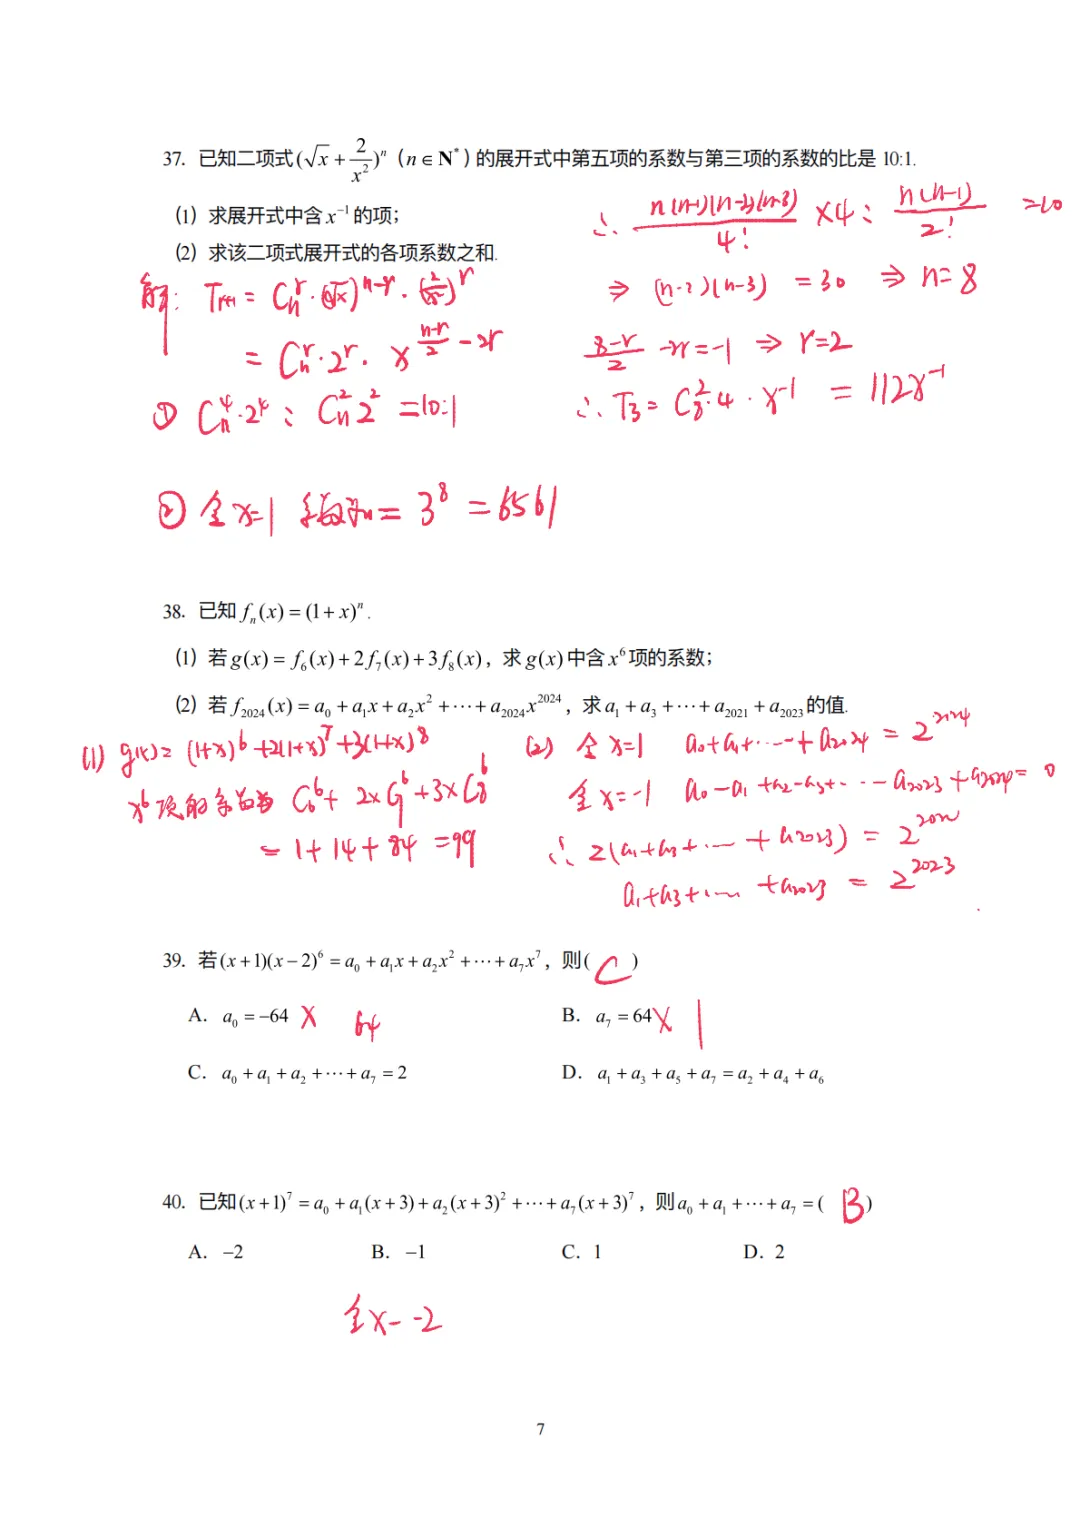 37. 已知二项式(√x + 2/x²)ⁿ（n∈N*）的展开式中第五项的系数与第三项的系数的比是 10:1.
(1) 求展开式中含 x⁻¹ 的项;
(2) 求该二项式展开式的各项系数之和.
解: Tr+1 = Cₙʳ·(√x)ⁿ⁻ʳ·(2/x²)ʳ
= Cₙʳ·2ʳ·x^((n-r)/2 - 2r)
① Cₙ⁴·2⁴ : Cₙ²2² = 10:1
∴ n(n-1)(n-2)(n-3)/4! ×4 : n(n-1)/2! =10
⇒ (n-2)(n-3) = 30 ⇒ n=8
(8-r)/2 -2r=-1 ⇒ r=2
∴ T₃ = C₈²·4·x⁻¹ = 112x⁻¹
② 令x=1 系数和= 3⁸ = 6561
38. 已知 fₙ(x) = (1+x)ⁿ.
(1) 若 g(x) = f₆(x)+2f₇(x)+3f₈(x)，求 g(x) 中含 x⁶ 项的系数;
(2) 若 f₂₀₂₄(x) = a₀+a₁x+a₂x²+⋯+a₂₀₂₄x²⁰²⁴，求 a₁+a₃+⋯+a₂₀₂₁+a₂₀₂₃ 的值.
(1) g(x)= (1+x)⁶+2(1+x)⁷+3(1+x)⁸
x⁶项的系数为 C₆⁶+ 2×C₇⁶+3×C₈⁶
= 1+14+84 =99
(2) 令 x=1 a₀+a₁+⋯+a₂₀₂₄ = 2²⁰²⁴
令 x=-1 a₀-a₁+a₂-a₃+⋯-a₂₀₂₃+a₂₀₂₄= 0
∴ 2(a₁+a₃+⋯+a₂₀₂₃) = 2²⁰²⁴
a₁+a₃+⋯+a₂₀₂₃ = 2²⁰²³
39. 若(x+1)(x-2)⁶ = a₀+a₁x+a₂x²+⋯+a₇x⁷，则( C )
A. a₀ = -64 × 64
B. a₇ = 64 × 1
C. a₀+a₁+a₂+⋯+a₇ = 2
D. a₁+a₃+a₅+a₇ = a₂+a₄+a₆
40. 已知(x+1)⁷ = a₀+a₁(x+3)+a₂(x+3)²+⋯+a₇(x+3)⁷，则a₀+a₁+⋯+a₇ = ( B )
A. -2 B. -1 C. 1 D. 2
令x=-2
7